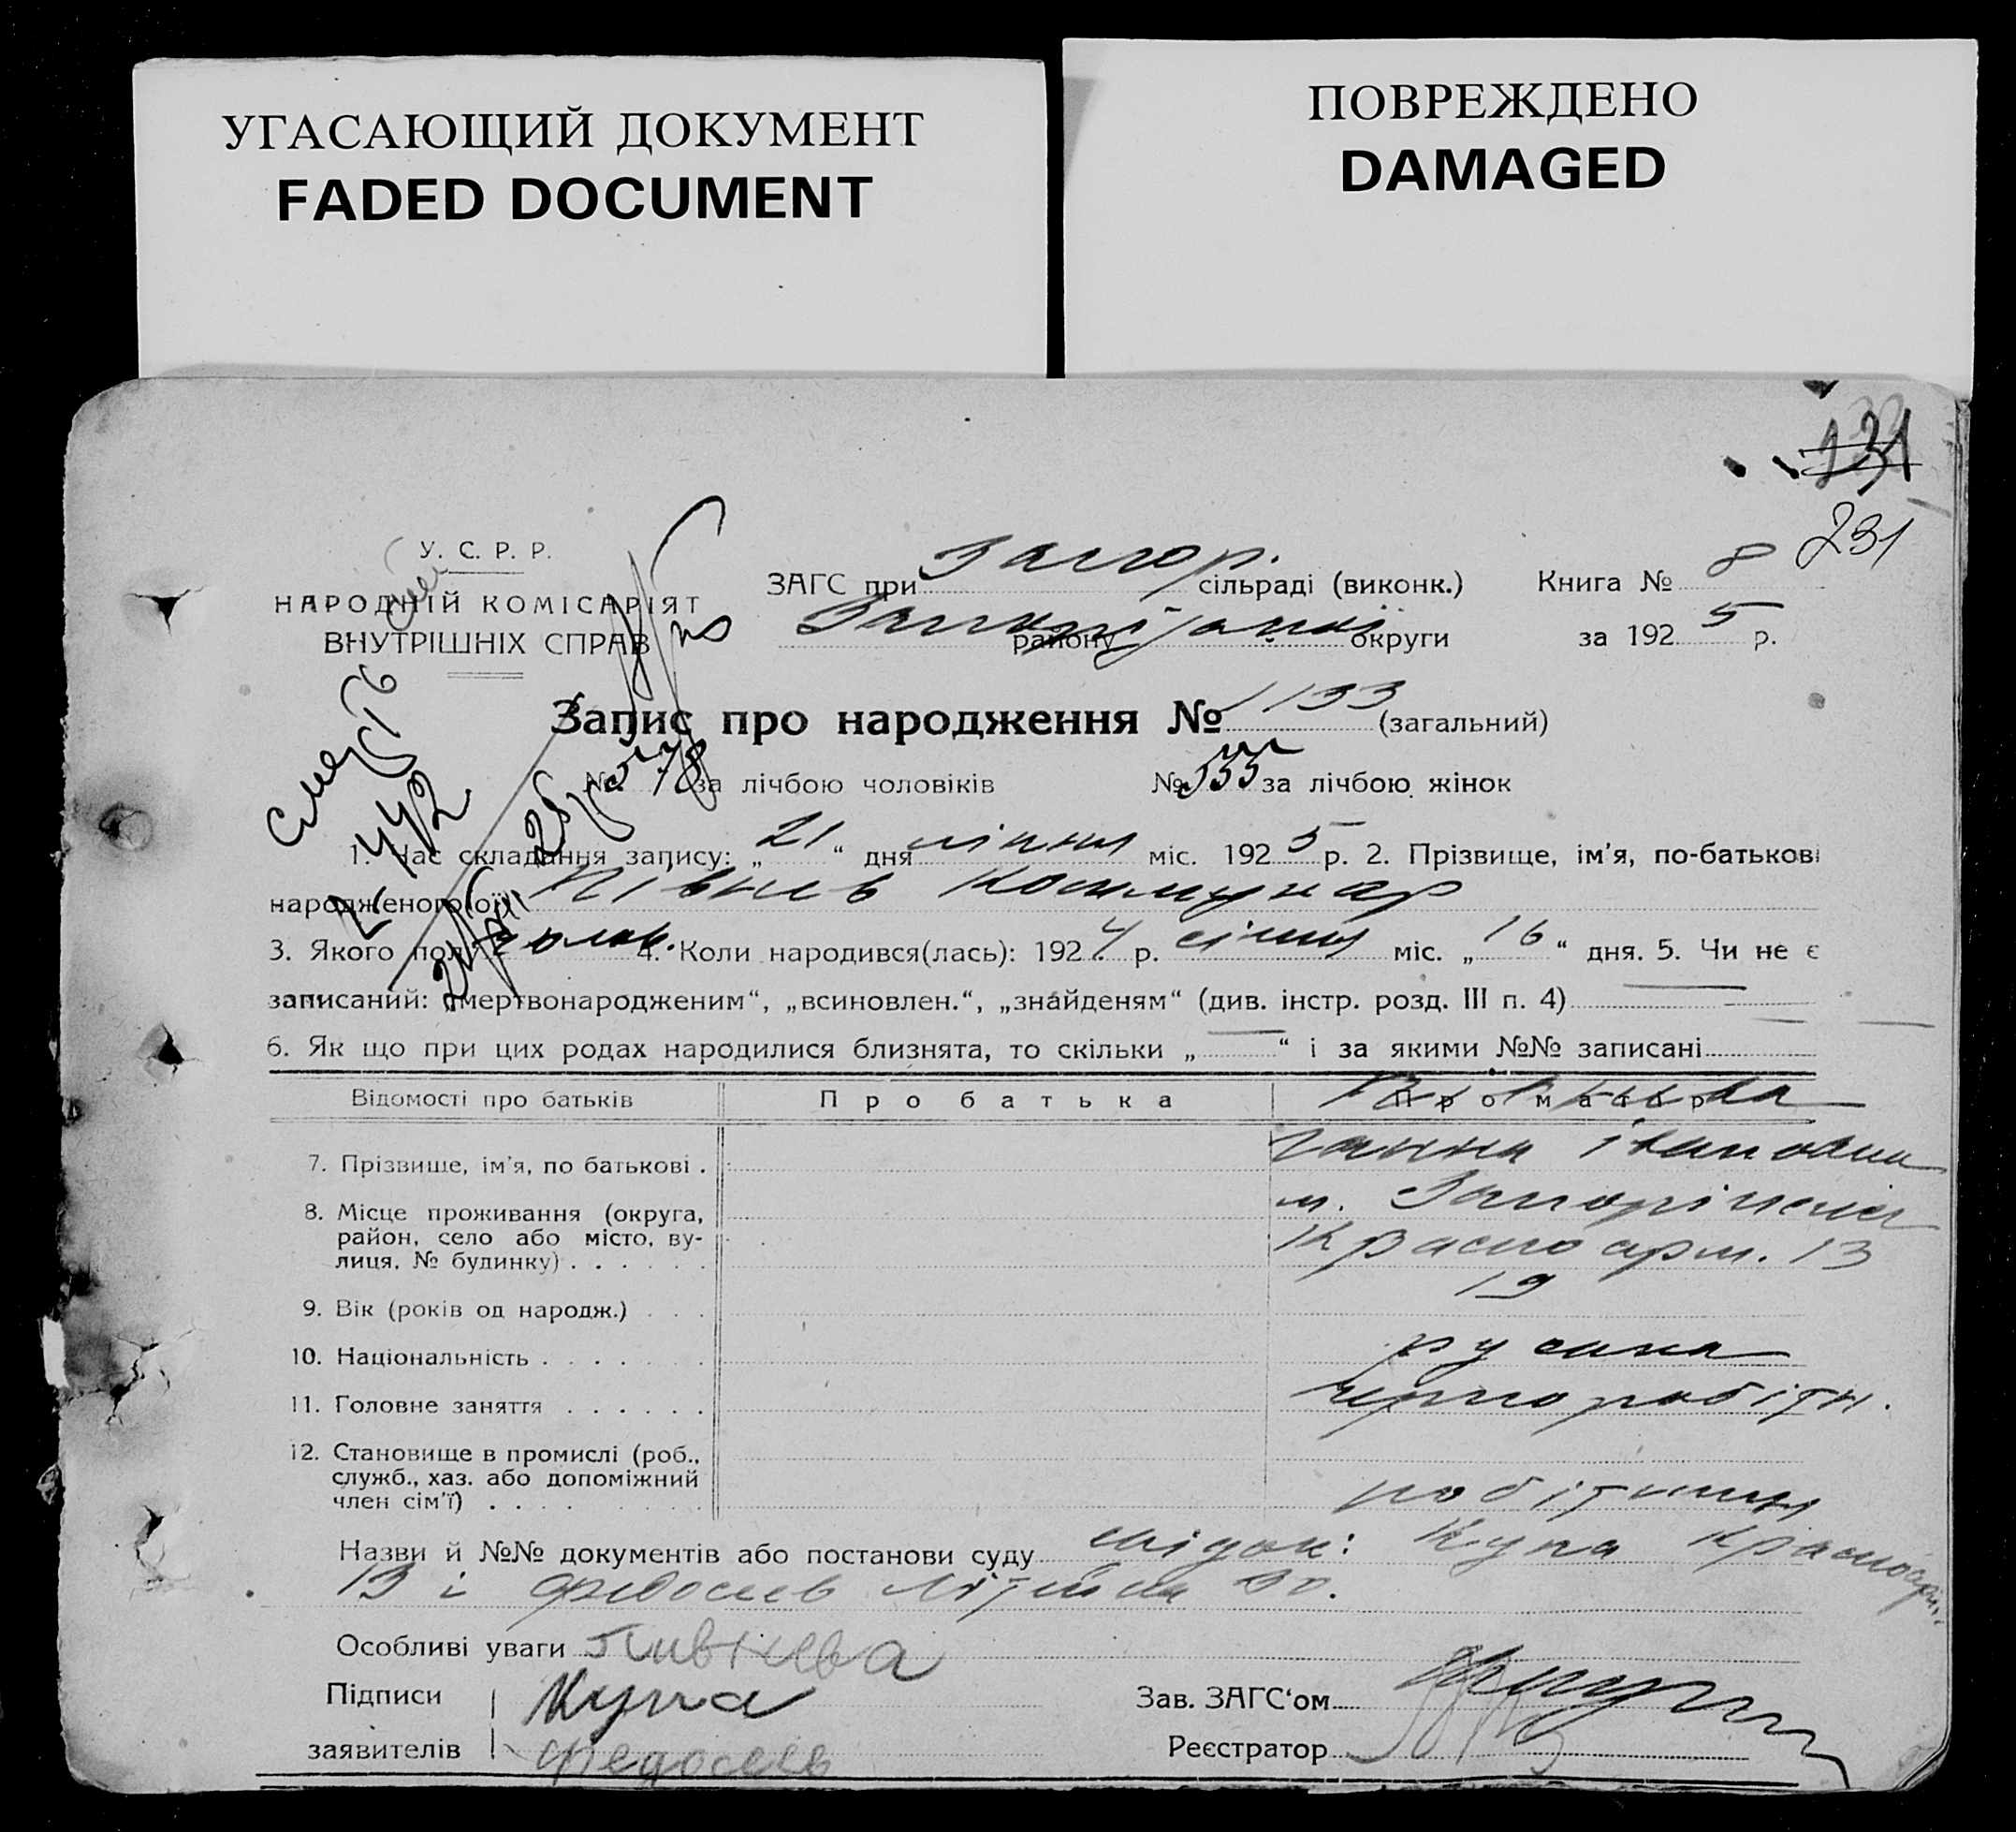 УГАСАЮЩИЙ ДОКУМЕНТ
FADED DOCUMENT
ПОВРЕЖДЕНО
DAMAGED
231
У. С. Р. Р.
НАРОДНІЙ КОМІСАРІЯТ
ВНУТРІШНІХ СПРАВ
ЗАГС при Запор. сільраді (виконк.)
району округи
Книга № 8
за 1925 р.
Запис про народження № 1133 (загальний)
№ 578 за лічбою чоловіків № 555 за лічбою жінок
Смерть
442
1. Час складання запису: „ 21 “ дня липня міс. 1925 р. 2. Прізвище, ім'я, по-батькові
народженого(ої) Півнєв Коммунар
3. Якого полу чолов. 4. Коли народився(лась): 1924 р. січня міс. „ 16 “ дня. 5. Чи не є
записаний: „мертвонародженим“, „всиновлен.“, „знайденям“ (див. інстр. розд. III п. 4)
6. Як що при цих родах народилися близнята, то скільки „ “ і за якими №№ записані
Відомості про батьків Про батька Про матір
7. Прізвише, ім'я, по батькові . Півнєва
Ганна Івановна
8. Місце проживання (округа, м. Запоріжжя
район, село або місто, ву- Красноарм. 13
лиця, № будинку) . . . . . .
9. Вік (років од народж.) . . . 19
10. Національність . . . . . . . руська
11. Головне заняття . . . . . . чорноробітн.
12. Становище в промислі (роб.,
служб., хаз. або допоміжний
член сім'ї) . . . . . . робітниця
Назви й №№ документів або постанови суду свідок: Купа Красноарм.
13 і Федосеев 30.
Особливі уваги Пивнева
Підписи Купа Зав. ЗАГС'ом
заявителів Федосеев Реєстратор